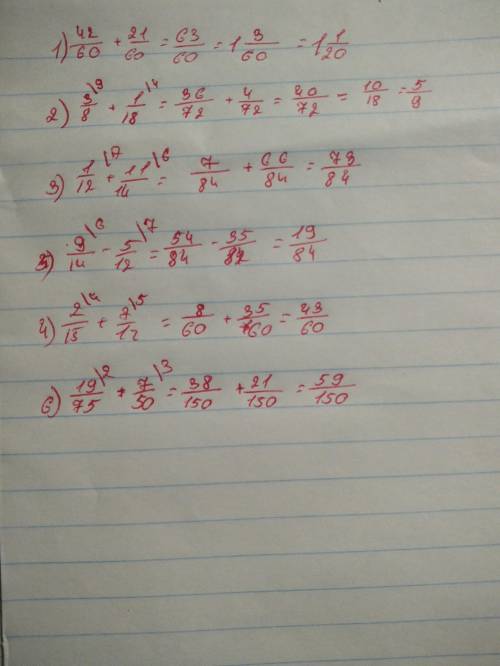 1) 42/60 + 21/60 = 63/60 = 1 3/60 = 1 1/20
2) 3\9/8 + 1\4/18 = 36/72 + 4/72 = 40/72 = 10/18 = 5/9
3) 1\7/12 + 11\6/14 = 7/84 + 66/84 = 73/84
5) 9\6/14 - 5\7/12 = 54/84 - 35/84 = 19/84
4) 2\4/15 + 7\5/12 = 8/60 + 35/60 = 43/60
6) 19\2/75 + 7\3/50 = 38/150 + 21/150 = 59/150